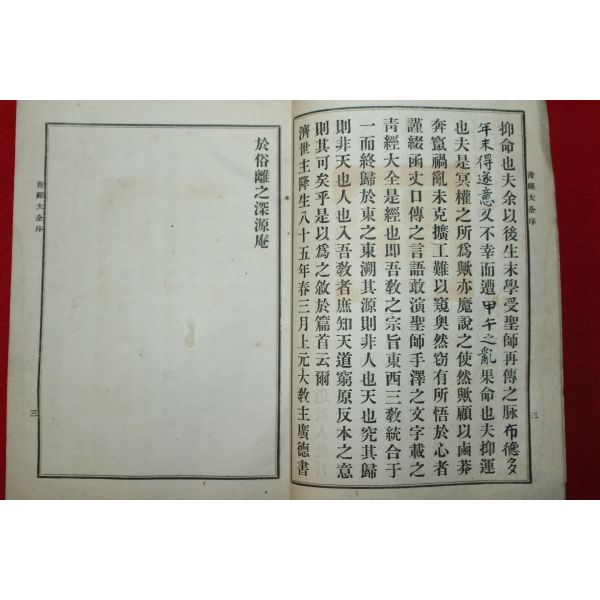 抑命也夫余以後生末學受聖師再傳之脉布德多
年未得遂意又不幸而遭甲午之亂果命也夫抑運
也夫是冥權之所爲歟亦魔說之使然歟顧以鹵莽
奔竄禍亂未克擴工難以窺奧然窃有所悟於心者
謹綴函丈口傳之言語敢演聖師手澤之文字載之
靑經大全是經也即吾敎之宗旨東西三敎統合于
一而終歸於東之東溯其源則非人也天也究其歸
則非天也人也入吾敎者庶知天道窮原反本之意
則其可矣乎是以爲之敘於篇首云爾
濟世主降生八十五年春三月上元大敎主廣德書
靑經大全序
二
於俗離之深源庵
靑經大全序
三